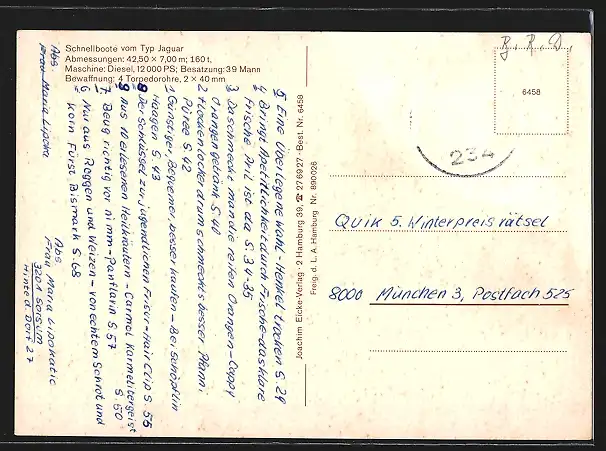 Schnellboote vom Typ Jaguar
Abmessungen: 42,50 × 7,00 m; 160 t,
Maschine: Diesel, 12000 PS; Besatzung: 39 Mann
Bewaffnung: 4 Torpedorohre, 2 × 40 mm
Abs.
Frau Maria Lipoka
5 Eine Überlegene Wahl - Henkel trocken S. 29
4 Bringt Apetitlichkeit durch Frische - das klare
Frische Pril ist da S. 34-35
3 Da schmeckt man die reifen Orangen - Cappy
Orangengetränk S. 40
2 Flockenlocker drum schmeckts besser Pfanni
Püree S. 42
1 Günstiger, Bequemer, besser kaufen - Bei Schöpflin
Haagen S. 43
8 Der Schlüssel zur jugendlichen Frisur - Hair Clip S. 55
9 Aus 10 erlesenen Heilkräutern - Carmol Karmelitergeist
S. 60
7 Beug richtig vor nimm - Panflavin S. 57
6 Nur aus Roggen und Weizen - von echtem Schrot und
Korn Fürst Bismark S. 68
Abs.
Frau Maria Lipokatic
3201 Sorsum
Hinterd. Dorf 27
Joachim Eicke-Verlag · 2 Hamburg 39, ☎ 276927 · Best. Nr. 6458
Freig. d. L. A. Hamburg Nr. 890026
B. R. D.
6458
234
Quik 5. Winterpreisrätsel
8000 München 3, Postfach 525